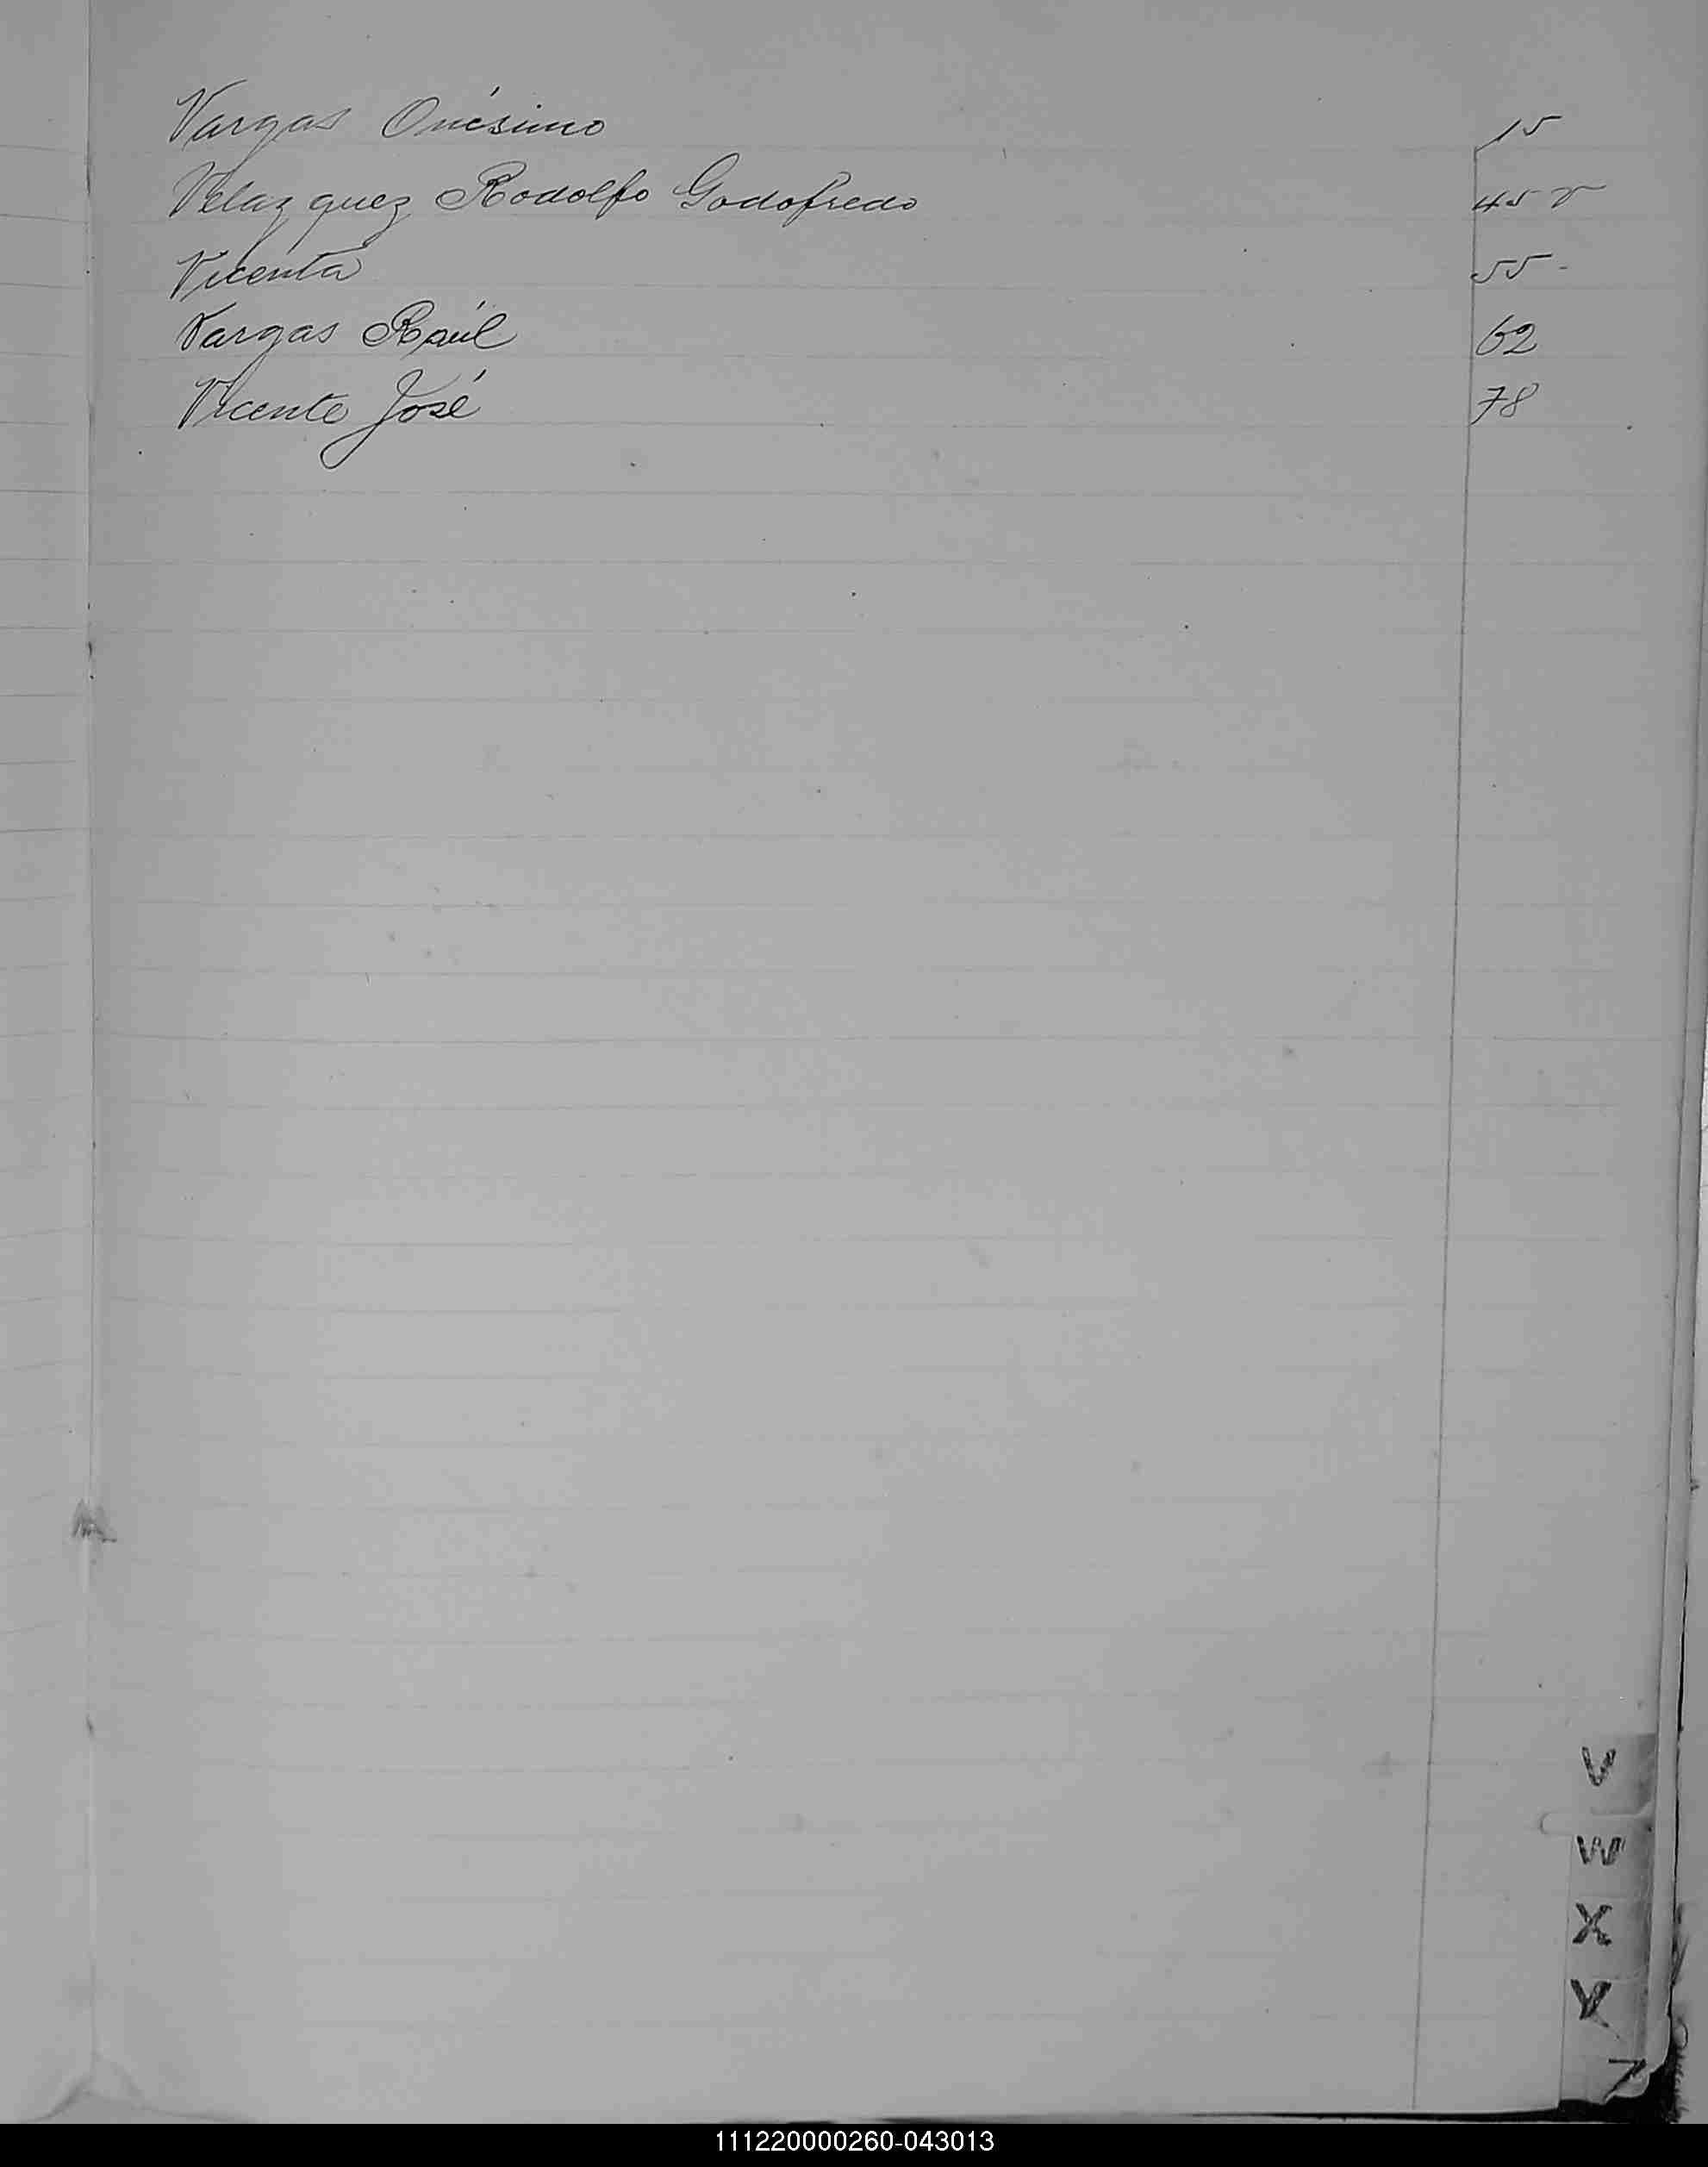 Vargas Onésimo 15
Velazquez Rodolfo Godofredo 45 v
Vicenta 55 -
Vargas Raúl 62
Vicente José 78
V
W
X
Y
Z
111220000260-043013